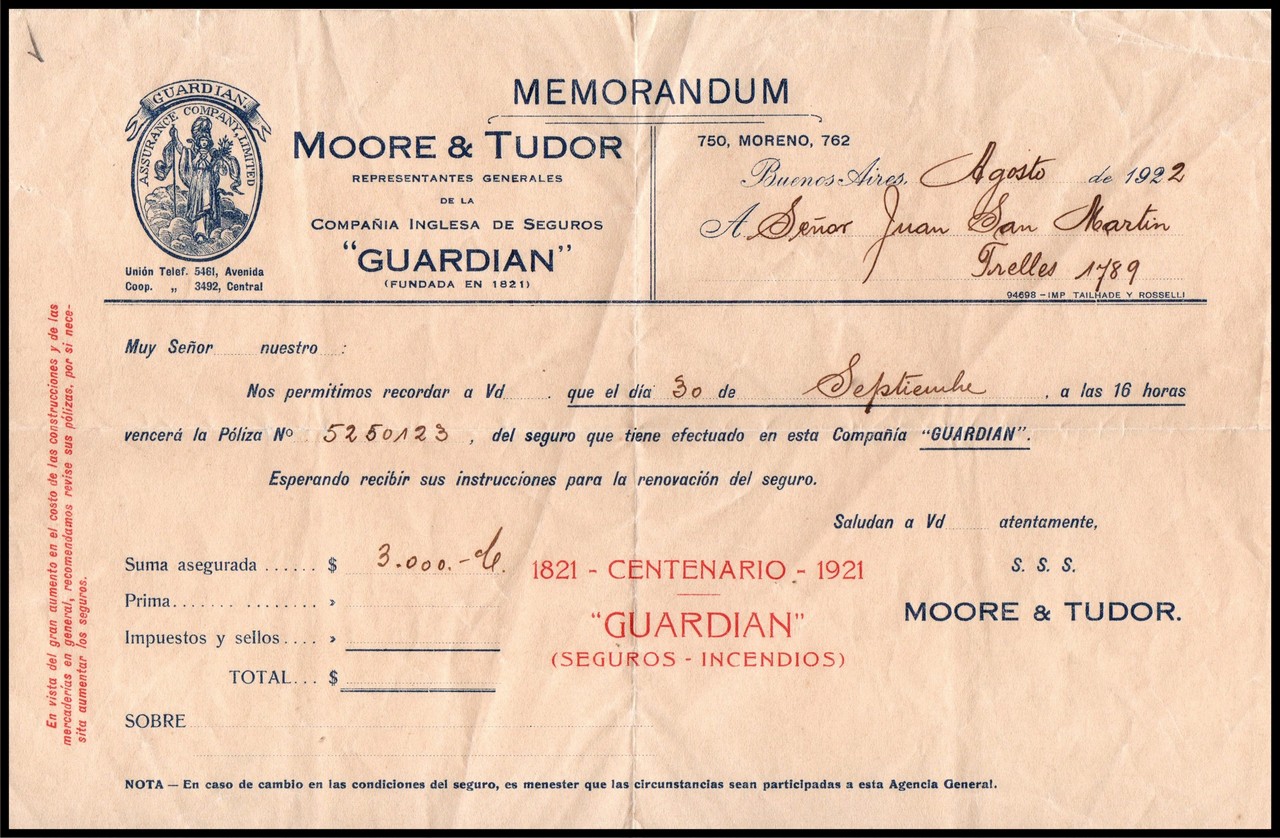 MEMORANDUM
GUARDIAN
ASSURANCE COMPANY, LIMITED
Unión Telef. 5461, Avenida
Coop. „ 3492, Central
MOORE & TUDOR
REPRESENTANTES GENERALES
DE LA
COMPAÑIA INGLESA DE SEGUROS
"GUARDIAN"
(FUNDADA EN 1821)
750, MORENO, 762
Buenos Aires, Agosto de 1922
A Señor Juan San Martin
Trelles 1789
94698 - IMP TAILHADE Y ROSSELLI
En vista del gran aumento en el costo de las construcciones y de las
mercaderías en general, recomendamos revise sus pólizas, por si nece-
sita aumentar los seguros.
Muy Señor nuestro :
Nos permitimos recordar a Vd . que el día 30 de Septiembre , a las 16 horas
vencerá la Póliza Nº 5250123 , del seguro que tiene efectuado en esta Compañía "GUARDIAN".
Esperando recibir sus instrucciones para la renovación del seguro.
Saludan a Vd atentamente,
S. S. S.
MOORE & TUDOR.
Suma asegurada ...... $ 3.000.-
Prima....... ......... »
Impuestos y sellos.... »
TOTAL... $
1821 - CENTENARIO - 1921
"GUARDIAN"
(SEGUROS - INCENDIOS)
SOBRE
NOTA — En caso de cambio en las condiciones del seguro, es menester que las circunstancias sean participadas a esta Agencia General.